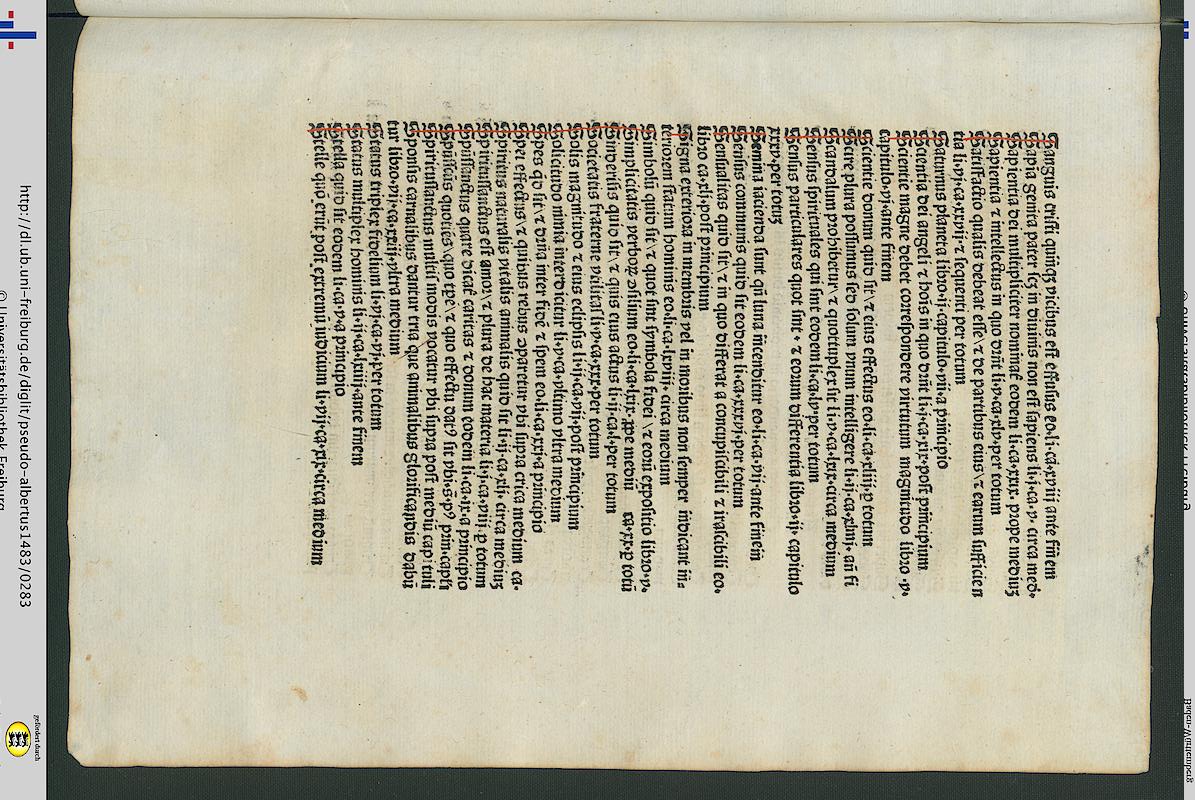 Sanguis cristi quinqꝫ vicibus est effusus eo·li·ca·xviij ante finem
Sapia genita pater sꝫ in diuinis non est sapiens li·j·ca·v· circa med·
Sapientia dei multipliciter nominat̄ eodem li·ca·xix· prope mediuꝫ
Sapientia ⁊ intellectus in quo dr̄nt li·v·ca·xlv·per totum
Satisfactio qualis debeat esse\⁊ de partibus eius\⁊ earum sufficien
tia li·vj·ca·xxvij·⁊ sequenti per totum
Saturnus planeta libro·ij·capitulo·vij·a principio
Scientia dei angeli ⁊ hois in quo dr̄nt li·j·ca·xix·post principium
Scientie magne debet correspondere virtutum magnitudo libro·v·
capitulo·vj·ante finem
Scientie donum quid sit\⁊ eius effectus eo·li·ca·xliij·ꝑ totum
Scire plura possimus sed solum vnum intelligere li·ij·ca·xlnij· añ fi
Scandalum prohibetur\⁊ quotuplex sit li·v·ca·lxx·circa medium
Sensus spirituales qui sint eodem li·ca·lv·per totum
Sensus particulares quot sint·⁊ eorum differentia libro·ij· capitulo
xxxv·per totuꝫ
Semina iacienda sunt qñ luna incenditur eo·li·ca·vij·ante finem
Sensus communis quid sit eodem li·ca·xxxvj·per totum
Sensualitas quid sit\⁊ in quo differat a concupiscibili ⁊ irascibili eo·
libro ca·xlj·post principium
Signa exteriora in membris vel in moribus non semper indicant in⸗
teriorem statum hominis eo·li·ca·lviij·circa medium
Simboli quid sit\⁊ quot sint symbola fidei\⁊ eoru expositio libro·v·
Simplicitatis verboꝝ filium eo·li·ca·lxix·ꝓpe mediū ca·xx·ꝑ totū
Sinderisis quid sit\⁊ quis eius actus li·ij·ca·l·per totum
Societatis fraterne vtilitas li·v·ca·xxx·per totum
Solis magnitudo ⁊ eius eclipsis li·ij·ca·vij·post principium
Solicitudo nimia interdicitur li·v·ca·vltimo vltra medium
Spes qd sit\⁊ dr̄ia inter fidē ⁊ spem eo·li·ca·xxj·a principio
Spei effectus ⁊ quibus rebus ↄparetur vbi supra circa medium ca·
Spiritus naturalis vitalis animalis quid sit li·ij·ca·xlij· circa mediuꝫ
Spūssanctus est amor\⁊ plura de hac materia li·j·ca·viij·ꝑ totum
Spūssanctus quare dicat̄ caritas ⁊ donum eodem li·ca·ix·a principio
Spūscūs quotiēs\quo tꝑe\⁊ quo effectu dat᷑ sit vbi·s̄·pꝰ prin·capti
Spiritussanctus multis modis vocatur vbi supra post mediū capituli
Sponsis carnalibus dantur tria que animalibus glorificandis dabū
tur libro·vij·ca·xxiij·vltra medium
Status triplex fidelium li·vj·ca·vj·per totum
Status multiplex hominis li·ij·ca·lxiij·ante finem
Stella quid sit eodem li·ca·v·a principio
Stelle quō erūt post extremū iudicium li·vij·ca·xix·circa medium
http://dl.ub.uni-freiburg.de/diglit/pseudo-albertus1483/0283
© Universitätsbibliothek Freiburg
gefördert durch